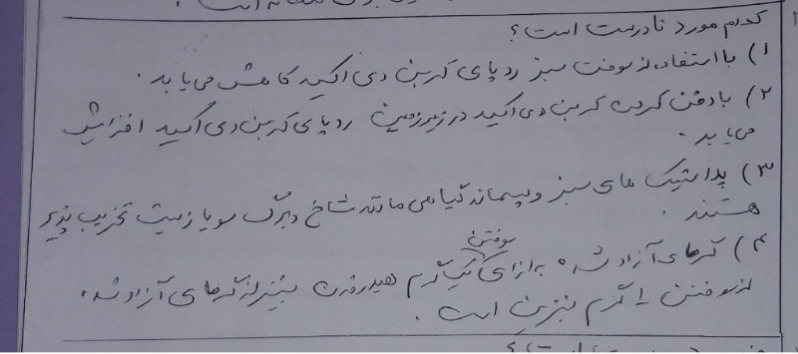 کدام مورد نادرست است؟
۱) با استفاده از سوخت سبز رد پای کربن دی اکسید کاهش می یابد.
۲) با دفن کردن کربن دی اکسید در زیر زمین رد پای کربن دی اکسید افزایش
می یابد.
۳) پلاستیک های سبز و پسماند گیاهی مانند شاخ و برگ سویا زیست تخریب پذیر
هستند.
سوختن
۴) گرمای آزاد شده به ازای یک گرم هیدروژن بیشتر از گرمای آزاد شده
از سوختن ۱ گرم بنزین است.